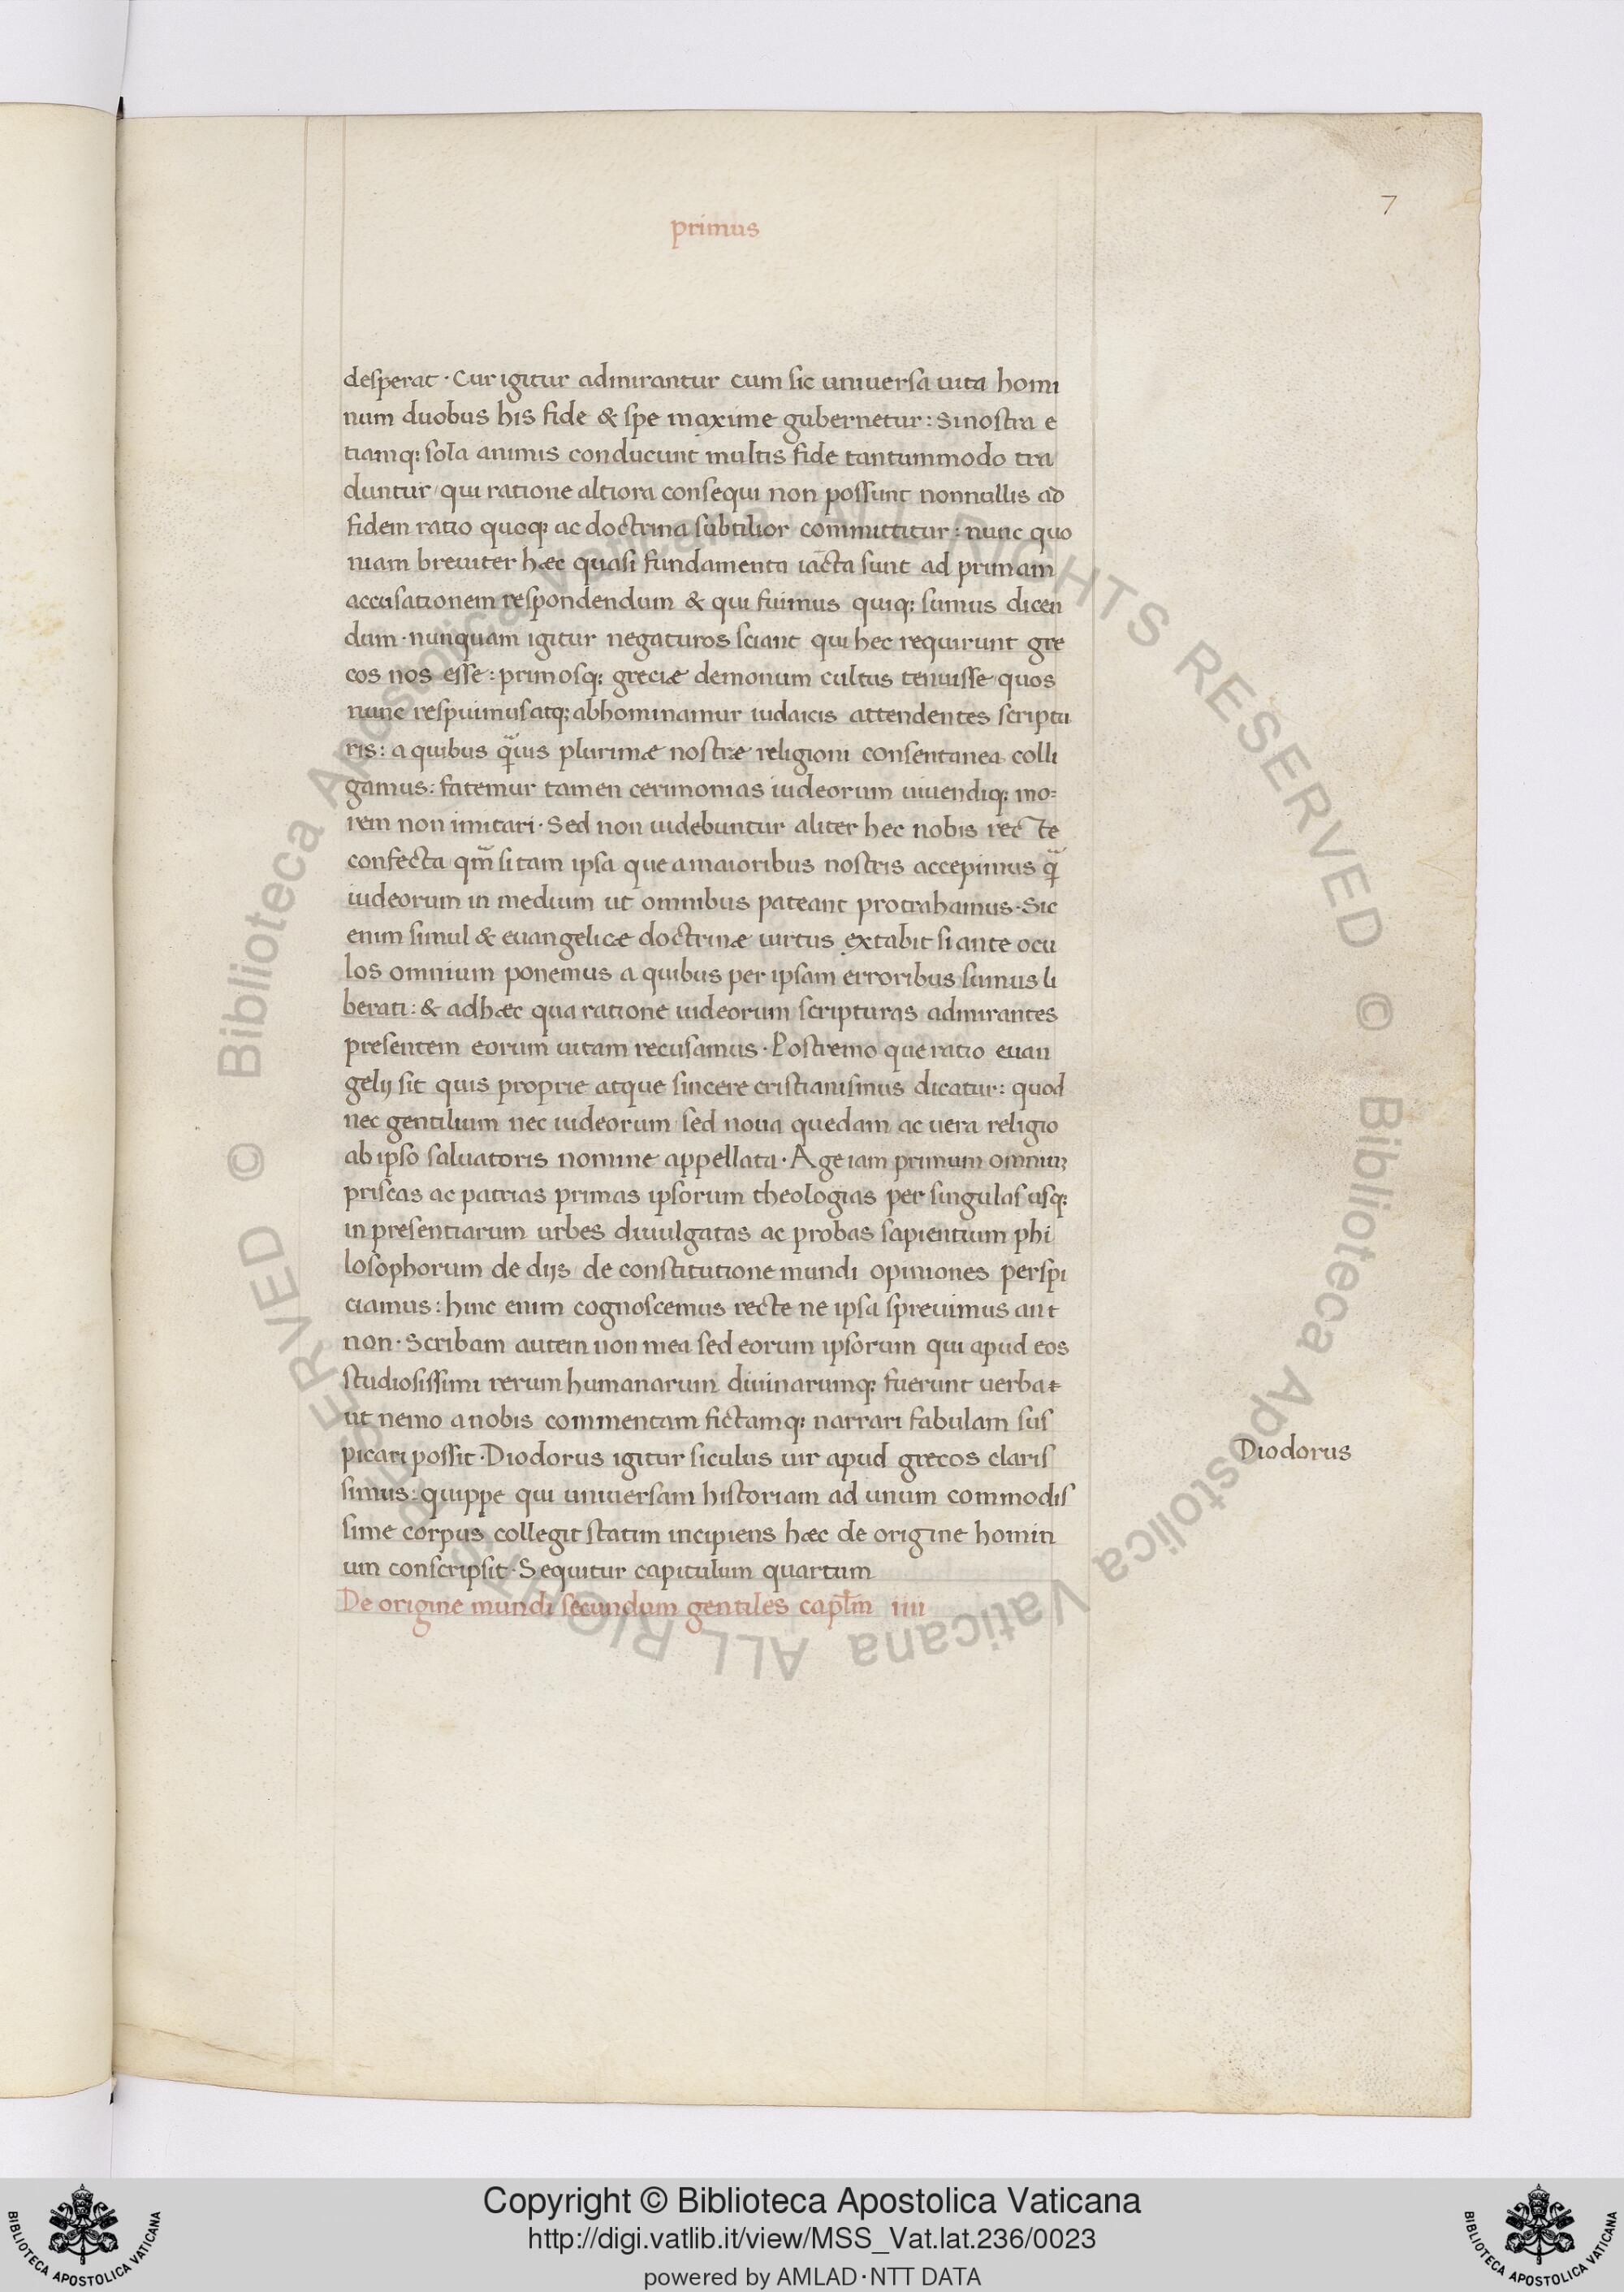 7
primus
desperat · Cur igitur admirantur cum sic uniuersa uita homi
num duobus his fide & spe maxime gubernetur : Si nostra e
tiamq; sola animis conducunt multis fide tantummodo tra
duntur / qui ratione altiora consequi non possunt nonnullis ad
fidem ratio quoq; ac doctrina subtilior committitur : nunc quo
niam breuiter hæc quasi fundamenta iacta sunt ad primam
accusationem respondendum & qui fuimus quiq; sumus dicen
dum · nunquam igitur negaturos sciant qui hec requirunt gre
cos nos esse : primosq; greciæ demonum cultus tenuisse quos
nunc respuimus atq; abhominamur iudaicis attendentes scriptu
ris : a quibus q̃uis plurimæ nostræ religioni consentanea colli
gamus : fatemur tamen cerimonias iudeorum uiuendiq; mo=
rem non imitari · Sed non uidebuntur aliter hec nobis recte
confecta qm̃ si tam ipsa que a maioribus nostris accepimus q̃
iudeorum in medium ut omnibus pateant protrahamus · Sic
enim simul & euangelicæ doctrinæ uirtus extabit si ante ocu
los omnium ponemus a quibus per ipsam erroribus sumus li
berati : & adhæc qua ratione iudeorum scripturas admirantes
presentem eorum uitam recusamus · Postremo que ratio euan
gelij sit quis proprie atque sincere cristianismus dicatur : quod
nec gentilium nec iudeorum sed noua quedam ac uera religio
ab ipso saluatoris nomine appellata · Age iam primum omniuꝫ
priscas ac patrias primas ipsorum theologias per singulas usq;
in presentiarum urbes diuulgatas ac probas sapientium phi
losophorum de dijs / de constitutione mundi opiniones perspi
ciamus : hinc enim cognoscemus recte ne ipsa spreuimus an t
non · Scribam autem non mea sed eorum ipsorum qui apud eos
studiosissimi rerum humanarum diuinarumq; fuerunt uerba
ut nemo a nobis commentam fictamq; narrari fabulam sus
picari possit · Diodorus igitur siculus uir apud grecos claris
Diodorus
simus : quippe qui uniuersam historiam ad unum commodis
sime corpus collegit statim incipiens hæc de origine homin
um conscripsit · Sequitur capitulum quartum
De origine mundi secundum gentiles capłm iiii
© Biblioteca Apostolica Vaticana ALL RIGHTS RESERVED © Biblioteca Apostolica Vaticana ALL RIGHTS RESERVED
Copyright © Biblioteca Apostolica Vaticana
http://digi.vatlib.it/view/MSS_Vat.lat.236/0023
powered by AMLAD·NTT DATA
BIBLIOTECA APOSTOLICA VATICANA
BIBLIOTECA APOSTOLICA VATICANA